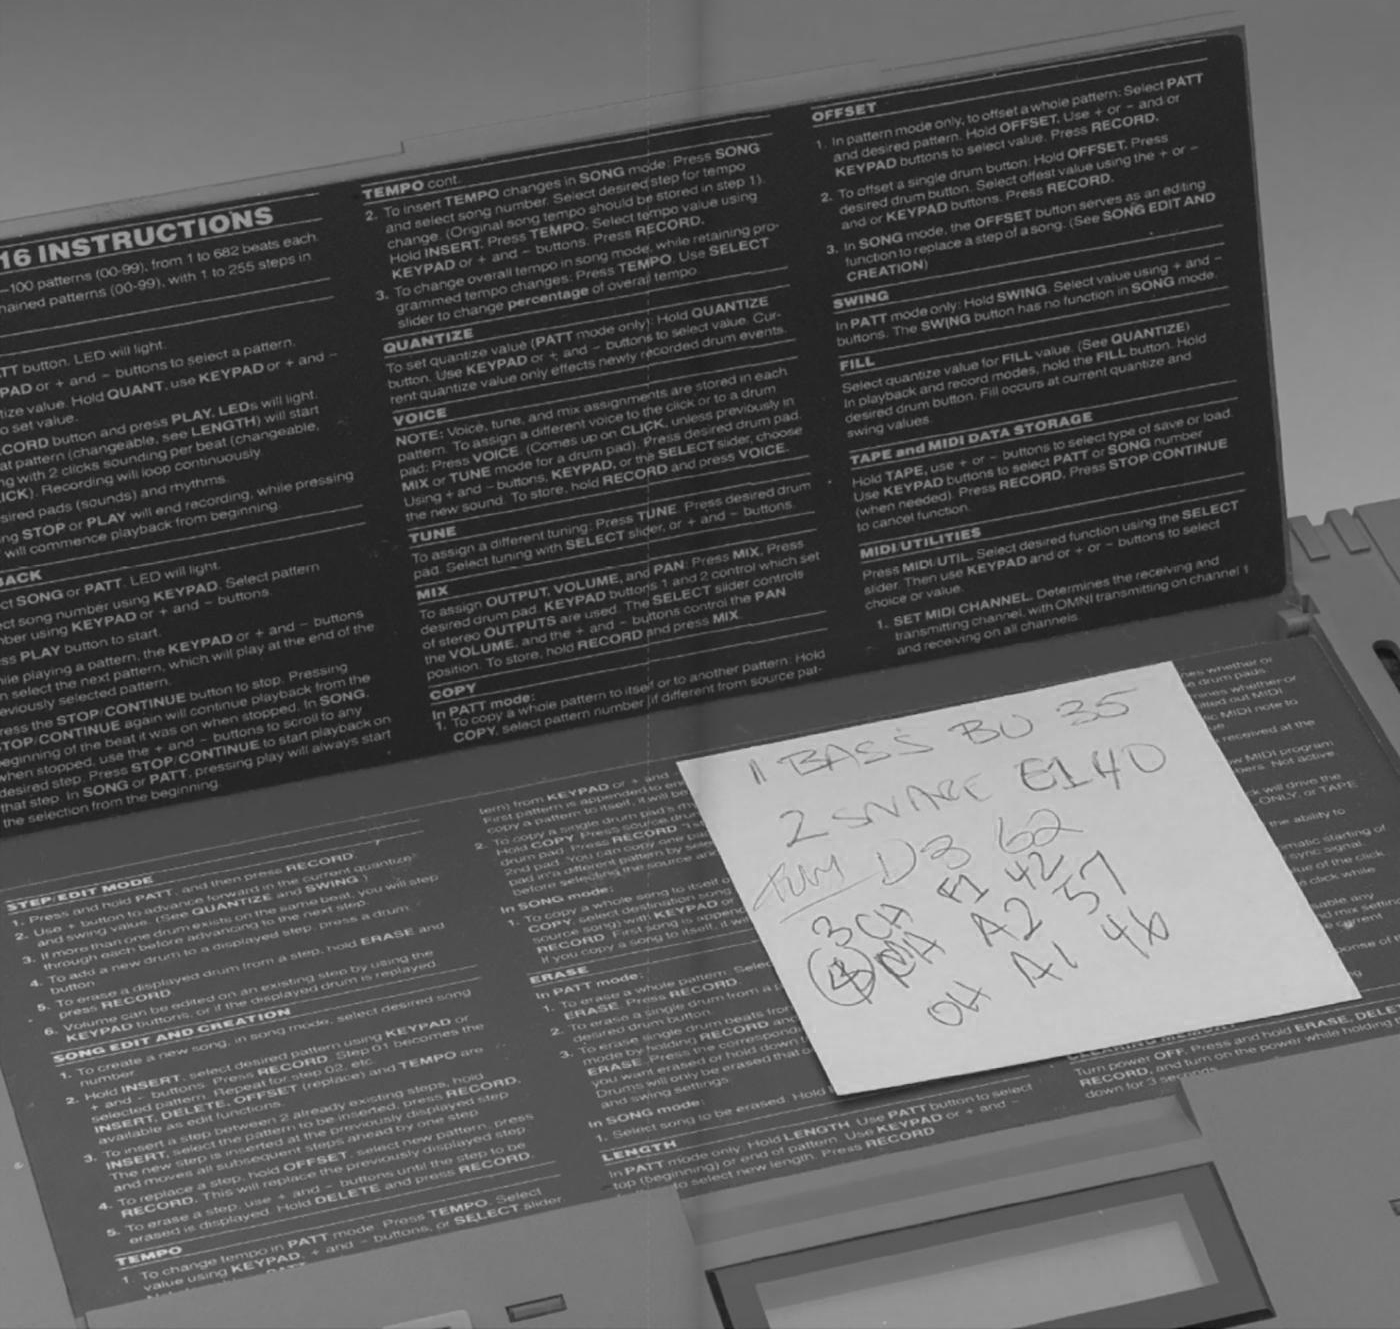 16 INSTRUCTIONS
–100 patterns (00-99), from 1 to 682 beats each
hained patterns (00-99), with 1 to 255 steps in
TT button. LED will light.
PAD or + and – buttons to select a pattern.
tize value. Hold QUANT, use KEYPAD or + and –
o set value.
CORD button and press PLAY. LEDs will light.
at pattern (changeable, see LENGTH) will start
ng with 2 clicks sounding per beat (changeable,
ICK). Recording will loop continuously
sired pads (sounds) and rhythms.
ng STOP or PLAY will end recording, while pressing
will commence playback from beginning.
BACK
ct SONG or PATT. LED will light.
ct song number using KEYPAD. Select pattern
ber using KEYPAD or + and – buttons.
ss PLAY button to start.
ile playing a pattern, the KEYPAD or + and – buttons
n select the next pattern, which will play at the end of the
eviously selected pattern.
ress the STOP/CONTINUE button to stop. Pressing
TOP/CONTINUE again will continue playback from the
eginning of the beat it was on when stopped. In SONG,
when stopped, use the + and – buttons to scroll to any
desired step. Press STOP/CONTINUE to start playback on
that step. In SONG or PATT, pressing play will always start
the selection from the beginning.
TEMPO cont.
2. To insert TEMPO changes in SONG mode: Press SONG
and select song number. Select desired step for tempo
change. (Original song tempo should be stored in step 1).
Hold INSERT. Press TEMPO. Select tempo value using
KEYPAD or + and – buttons. Press RECORD.
3. To change overall tempo in song mode, while retaining pro-
grammed tempo changes: Press TEMPO. Use SELECT
slider to change percentage of overall tempo
QUANTIZE
To set quantize value (PATT mode only): Hold QUANTIZE
button. Use KEYPAD or + and – buttons to select value. Cur-
rent quantize value only effects newly recorded drum events.
VOICE
NOTE: Voice, tune, and mix assignments are stored in each
pattern. To assign a different voice to the click or to a drum
pad: Press VOICE (Comes up on CLICK, unless previously in
MIX or TUNE mode for a drum pad). Press desired drum pad.
Using + and – buttons, KEYPAD, or the SELECT slider, choose
the new sound. To store, hold RECORD and press VOICE.
TUNE
To assign a different tuning: Press TUNE. Press desired drum
pad. Select tuning with SELECT slider, or + and – buttons.
MIX
To assign OUTPUT, VOLUME, and PAN: Press MIX. Press
desired drum pad. KEYPAD buttons 1 and 2 control which set
of stereo OUTPUTS are used. The SELECT slider controls
the VOLUME, and the + and – buttons control the PAN
position. To store, hold RECORD and press MIX.
COPY
In PATT mode:
1. To copy a whole pattern to itself or to another pattern: Hold
COPY, select pattern number (if different from source pat-
OFFSET
1. In pattern mode only, to offset a whole pattern: Select PATT
and desired pattern. Hold OFFSET. Use + or – and or
KEYPAD buttons to select value. Press RECORD.
2. To offset a single drum button: Hold OFFSET. Press
desired drum button. Select offest value using the + or –
and or KEYPAD buttons. Press RECORD.
3. In SONG mode, the OFFSET button serves as an editing
function to replace a step of a song. (See SONG EDIT AND
CREATION)
SWING
In PATT mode only: Hold SWING. Select value using + and –
buttons. The SWING button has no function in SONG mode.
FILL
Select quantize value for FILL value. (See QUANTIZE)
In playback and record modes, hold the FILL button. Hold
desired drum button. Fill occurs at current quantize and
swing values.
TAPE and MIDI DATA STORAGE
Hold TAPE, use + or – buttons to select type of save or load.
Use KEYPAD buttons to select PATT or SONG number
(when needed). Press RECORD. Press STOP/CONTINUE
to cancel function.
MIDI/UTILITIES
Press MIDI/UTIL. Select desired function using the SELECT
slider. Then use KEYPAD and or + or – buttons to select
choice or value.
1. SET MIDI CHANNEL. Determines the receiving and
transmitting channel, with OMNI transmitting on channel 1
and receiving on all channels
STEP/EDIT MODE
1. Press and hold PATT, and then press RECORD
2. Use + button to advance forward in the current quantize
and swing value. (See QUANTIZE and SWING.)
3. If more than one drum exists on the same beat, you will step
through each before advancing to the next step.
4. To add a new drum to a displayed step, press a drum
button
5. To erase a displayed drum from a step, hold ERASE and
press RECORD
6. Volume can be edited on an existing step by using the
KEYPAD buttons, or if the displayed drum is replayed
SONG EDIT AND CREATION
1. To create a new song, in song mode, select desired song
number
2. Hold INSERT, select desired pattern using KEYPAD or
+ and – buttons. Press RECORD. Step 01 becomes the
selected pattern. Repeat for step 02, etc.
INSERT, DELETE, OFFSET (replace) and TEMPO are
available as edit functions.
3. To insert a step between 2 already existing steps, hold
INSERT, select the pattern to be inserted, press RECORD.
The new step is inserted at the previously displayed step
and moves all subsequent steps ahead by one step
4. To replace a step, hold OFFSET, select new pattern, press
RECORD. This will replace the previously displayed step
5. To erase a step, use + and – buttons until the step to be
erased is displayed. Hold DELETE and press RECORD.
TEMPO
1. To change tempo in PATT mode. Press TEMPO. Select
value using KEYPAD, + and – buttons, or SELECT slider
tern) from KEYPAD or + and
First pattern is appended to
copy a pattern to itself, it will be
2. To copy a single drum pad's
Hold COPY. Press source dru
drum pad. Press RECORD
2nd pad. You can copy one pa
pad in a different pattern by sele
before selecting the source an
In SONG mode:
1. To copy a whole song to itself o
COPY, select destination song
source song) with KEYPAD o
RECORD. First song is appen
If you copy a song to itself, it w
ERASE
In PATT mode:
1. To erase a whole pattern. Selec
ERASE. Press RECORD.
2. To erase a single drum from a
desired drum button
3. To erase single drum beats from
mode by holding RECORD an
ERASE. Press the correspon
you want erased or hold down
Drums will only be erased that o
and swing settings
In SONG mode:
1. Select song to be erased. Hold
LENGTH
In PATT mode only. Hold LENGTH. Use PATT button to select
top (beginning) or end of pattern. Use KEYPAD or + and –
to select new length. Press RECORD
1 BASS B0 35
2 SNARE E1 40
D3 62
3 CH F1 42
4 A2 57
OH A1 46
es whether or
n drum pads.
ines whether or
tted out MIDI
ic MIDI note to
received at the
w MIDI program
bers. Not active
ck will drive the
ONLY, or TAPE
the ability to
matic starting of
sync signal.
ue of the click
click while
sable any
nd mix setting
onse of
Turn power OFF. Press and hold ERASE, DELE
RECORD, and turn on the power while holding
down for 3 seconds